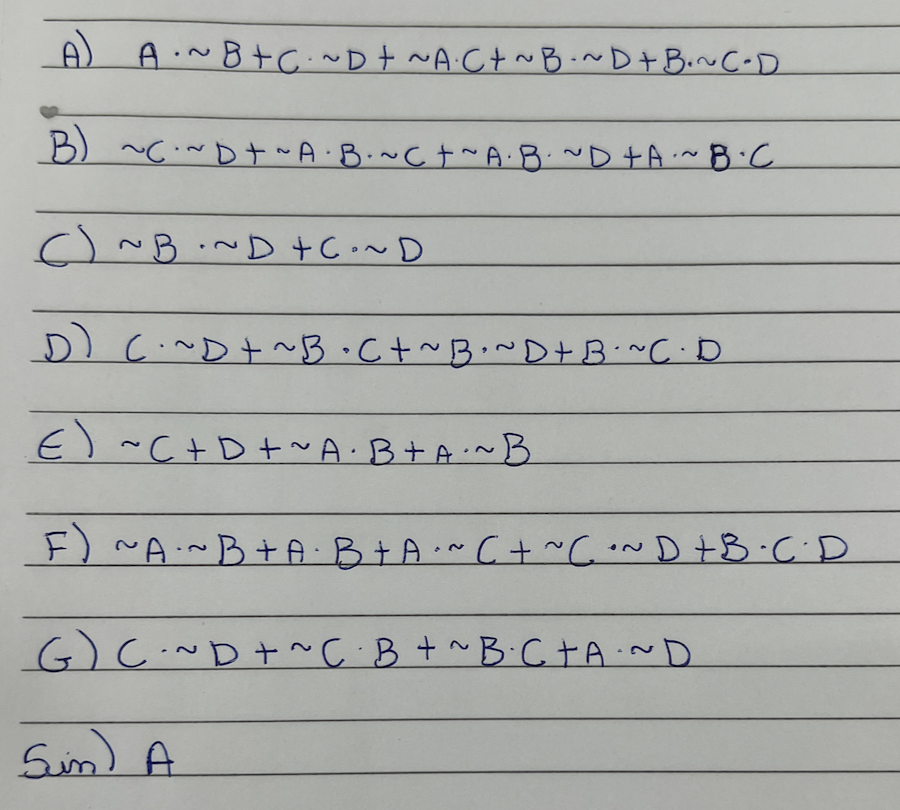 A) A·~B+C·~D+~A·C+~B·~D+B·~C·D
B) ~C·~D+~A·B·~C+~A·B·~D+A·~B·C
C) ~B·~D+C·~D
D) C·~D+~B·C+~B·~D+B·~C·D
E) ~C+D+~A·B+A·~B
F) ~A·~B+A·B+A·~C+~C·~D+B·C·D
G) C·~D+~C·B+~B·C+A·~D
Sin) A